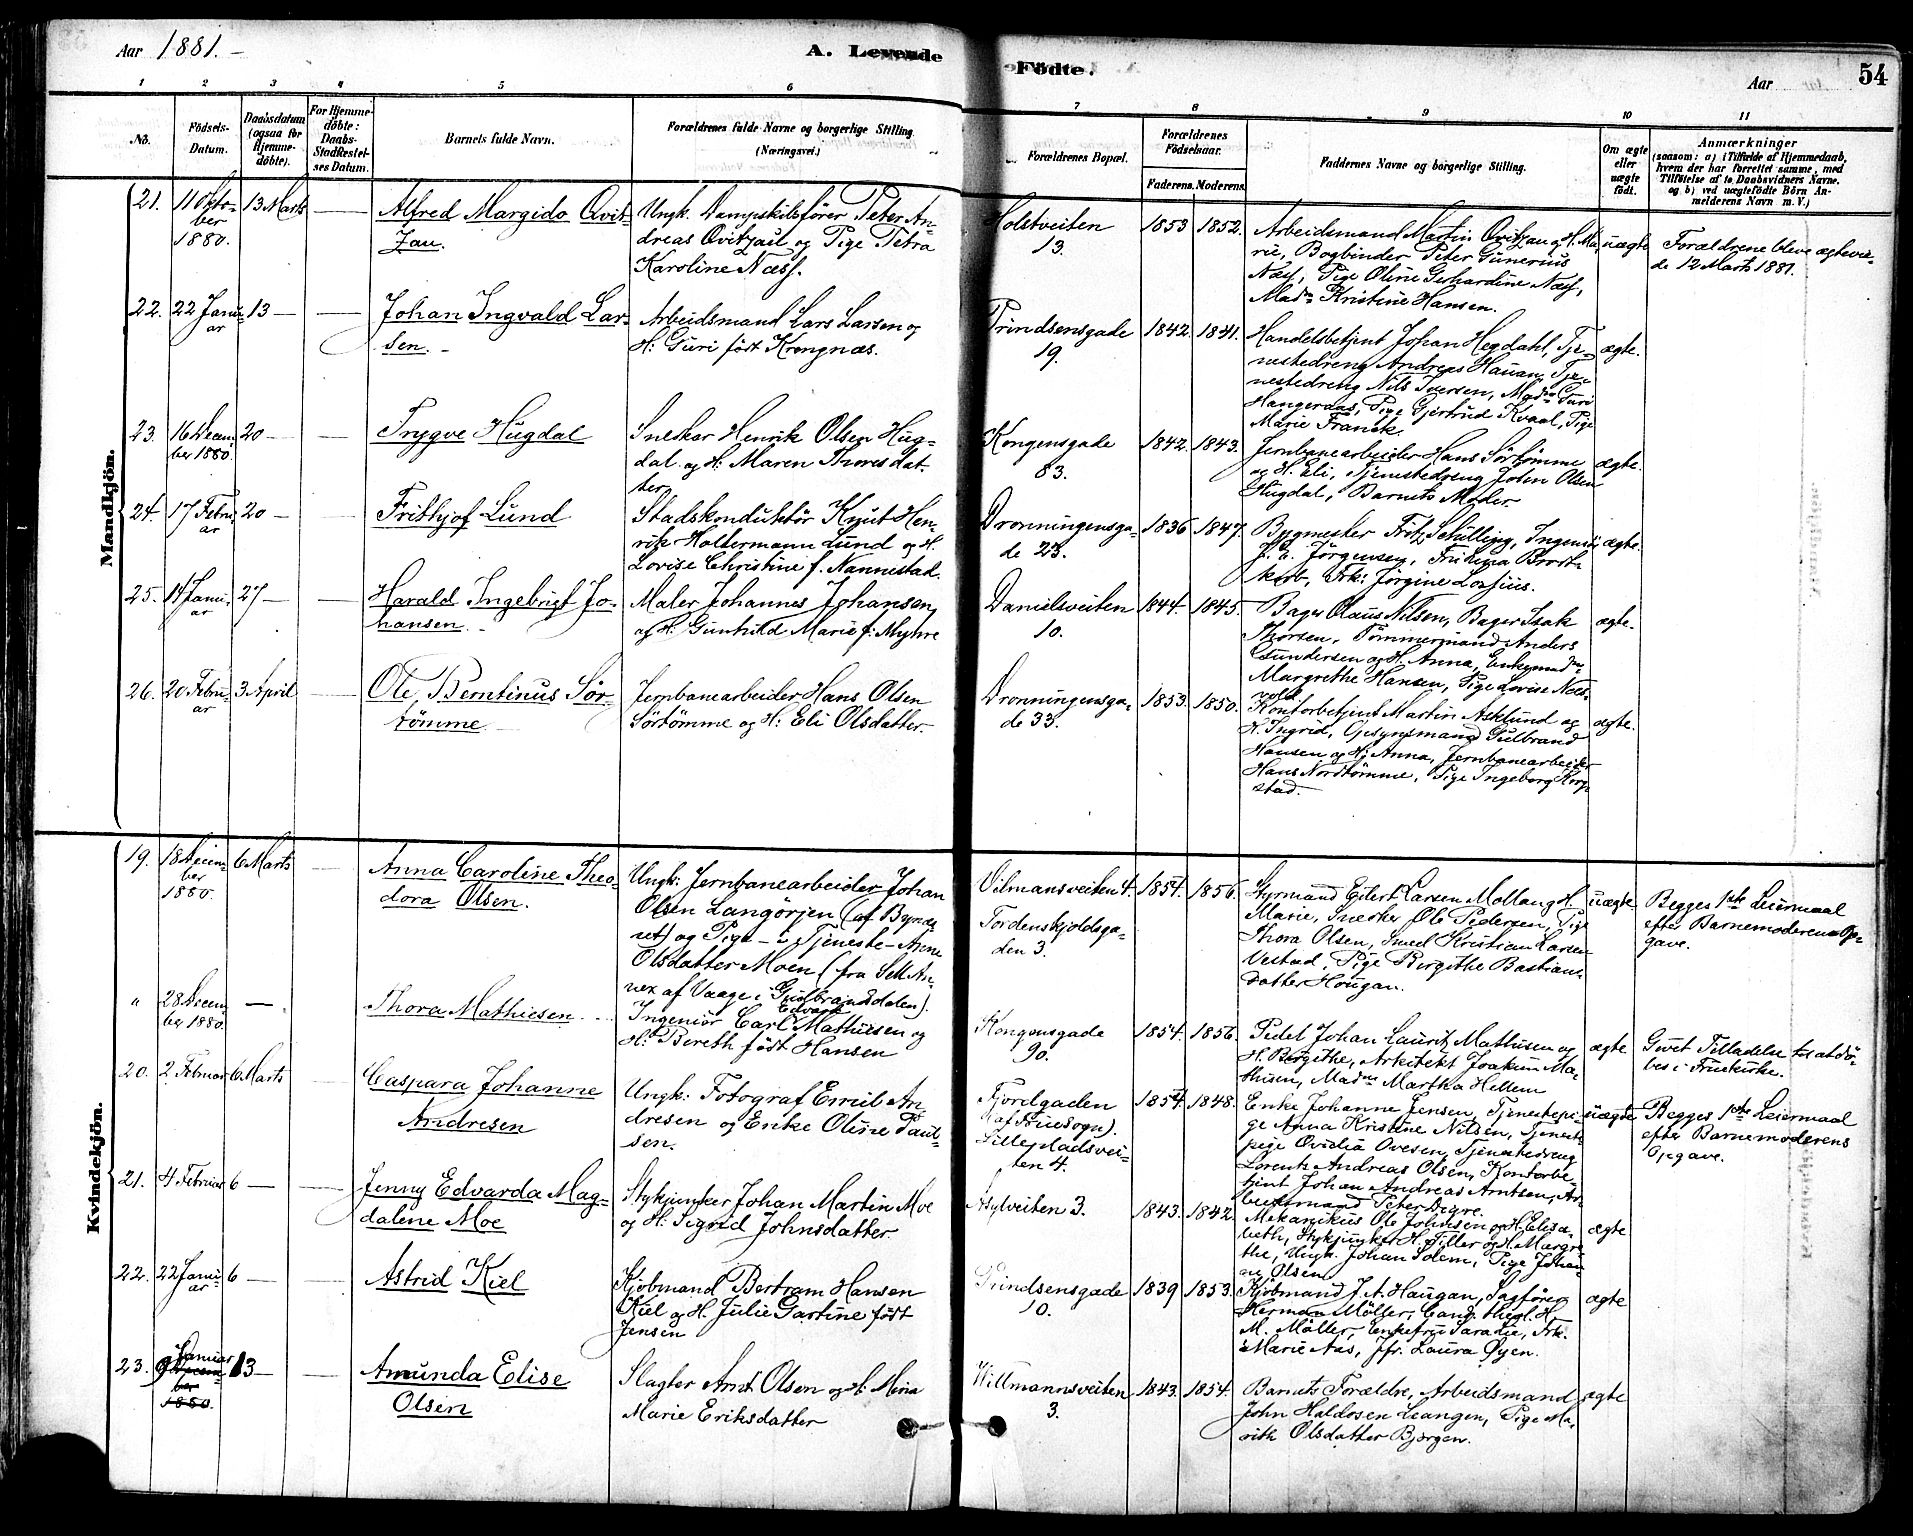 Aar 1881.
A. Levende Födte.
Aar
54
1 2 3 4 5 6 7 8 9 10 11
No.
Födsels-
Datum.
Daabsdatum
(ogsaa for
Hjemme-
döbte).
For Hjemme-
döbte:
Daabs-
Stadfæstel-
ses Datum.
Barnets fulde Navn.
Forældrenes fulde Navne og borgerlige Stilling.
(Næringsvei.)
Forældrenes Bopæl.
Forældrenes
Födselsaar.
Faderens. Moderens.
Faddernes Navne og borgerlige Stilling.
Om ægte
eller
uægte
født.
Anmærkninger
(saasom: a) i Tilfælde af Hjemmedaab,
hvem der har forrettet samme, med
Tilføielse af to Daabsvidners Navne,
og b) ved uægtefödte Börn An-
melderens Navn m. V.)
Mandkjön.
21.
11 Okto-
ber
1880.
13 Marts
Alfred Margido Qvit-
zau.
Ungk. Dampskibsförer Peter An-
dreas Qvitzau og Pige Petra
Karoline Næss.
Holstveiten
13.
1853 1852.
Arbeidsmand Martin Qvitzau og H. Ma-
rie, Bogbinder Peter Gunerius
Næss, Pige Oline Gerhardine Næss,
Madm Kristine Hansen.
uægte
Forældrene bleve ægtevie-
de 12 Marts 1881.
22.
22 Janu-
ar
13 —
Johan Ingvald Lar-
sen.
Arbeidsmand Lars Larsen og
H: Guri født Krongnæs.
Prindsensgade
19.
1842. 1841.
Handelsbetjent Johan Hegdahl, Tje-
nestedreng Andreas Hauan, Tje-
nestedreng Nils Iversen, Madm Guri
Hangeraas, Pige Gjertrud Kvaal, Pige
Marie Franck.
ægte.
23.
16 Decem-
ber 1880
20 —
Trygve Hugdal
Snekker Henrik Olsen Hug-
dal og H: Maren Thoresdat-
ter
Kongensgade
83.
1842. 1843.
Jernbanearbeider Hans Sörtömme
og H. Eli, Tjenestedreng John Olsen
Hugdal, Barnets Moder.
ægte.
24.
17 Febru-
ar
20 —
Frithjof Lund
Stadskonduktör Knut Hen-
rik Holtermann Lund og H.
Lovise Christine f. Nannestad.
Dronningensga-
de 23.
1836 1847.
Bygmester Fritz Schulling, Ingeniör
J. E. Jörgensen, Frökena Brodt-
korb, Frk: Jörgine Lossius.
ægte.
25.
14 Janu-
ar
27 —
Harald Ingebrigt Jo-
hansen.
Maler Johannes Johansen
og H: Gunhild Marie f: Myhre
Danielsveiten
10.
1844. 1845.
Bager Olaus Nilsen, Bager Isak
Thorsen, Tömmermand Anders
Gundersen og H. Anna, Enkemadm
Margrethe Hansen, Pige Lovise Næs-
vold.
ægte.
26.
20 Febru-
ar
3 April
Ole Berntinus Sör-
tömme
Jernbanearbeider Hans Olsen
Sörtömme og H: Eli Olsdatter.
Dronningensga-
de 33.
1853. 1850.
Kontorbetjent Martin Asklund og
H. Ingrid, Opsynsmand Gulbrand
Hansen og H: Anna, Jernbanearbeider
Hans Nordtömme, Pige Ingeborg Korp-
stad.
ægte.
Kvindekjön.
19.
18 Decem-
ber
1880.
6 Marts
Anna Caroline Theo-
dora Olsen.
Ungk: Jernbanearbeider Johan
Olsen Langörjen (af Bynæs-
set) og Pige — i Tjeneste — Anne
Olsdatter Moen (fra Sell An-
nex af Vaage i Gudbrandsdalen).
Vilmansveiten 4.
Tordenskjoldsga-
den 3.
1854. 1856.
Styrmand Eilert Larsen Mollan og H.
Marie, Snecker Ole Pedersen, Pige
Thora Olsen, Smed Kristian Larsen
Vestad, Pige Birgithe Bastians-
datter Hougan.
uægte
Begges 1ste Leiermaal
efter Barnemoderens Op-
gave.
"
28 Decem-
ber 1880.
—
Thora Mathiesen
Ingeniør Carl Edvard Mathiesen og
H: Bereth født Hansen
Kongensgade
90.
1854. 1856.
Pedel Johan Lauritz Mathisen og
H. Bergithe, Arkitekt Joakim Ma-
thisen, Madm Martha Hellem
ægte
Givet Tilladelse til at dö-
bes i Fruekirke.
20.
2 Februar
6 Marts
Caspara Johanne
Andresen
Ungk: Fotograf Emil An-
dresen og Enke Oline Paul-
sen.
Fjordgaden
(af Fruesogn).
Lillepladsvei-
ten 4.
1854. 1848.
Enke Johanne Jensen, Tjenestepi-
ge Anna Kristine Nilsen, Tjeneste-
pige Ovidia Ovesen, Tjenestedreng
Lorents Andreas Olsen, Kontorbe-
tjent Johan Andreas Arntsen, Ar-
beidsmand Peter Digre.
uægte
Begges 1ste Leiermaal
efter Barnemoderens
Opgave.
21.
4 Februar
6 —
Jenny Edvarda Mag-
dalene Moe
Stykjunker Johan Martin Moe
og H: Sigrid Johnsdatter.
Asylveiten 3.
1843. 1842.
Mekanikus Ole Johnsen og H. Elisa-
beth, Stykjunker H. Tiller og H. Margre-
the, Ungk. Johan Solem, Pige Johan-
ne Olsen
ægte
22.
22 Janu-
ar
6 —
Astrid Kiel
Kjöbmand Bertram Hansen
Kiel og H. Julie Gartine født
Jensen
Prindsensgade
10.
1839 1853.
Kjöbmand J. A. Haugan, Sagförer
Herman Möller, Cand. theol. H.
M. Möller, Enkefru Paradie, Frk.
Marie Aas, Jfr. Laura Öyen.
ægte
23.
9 Januar
Decem-
ber
1880.
13 —
Amunda Elise
Olsen
Slagter Arnt Olsen og H. Maria
Marie Eriksdatter
Willmannsveiten
3.
1843. 1854.
Barnets Forældre, Arbeidsmand
John Haldosen Leangen, Pige Ma-
rith Olsdatter Bjørgen.
ægte